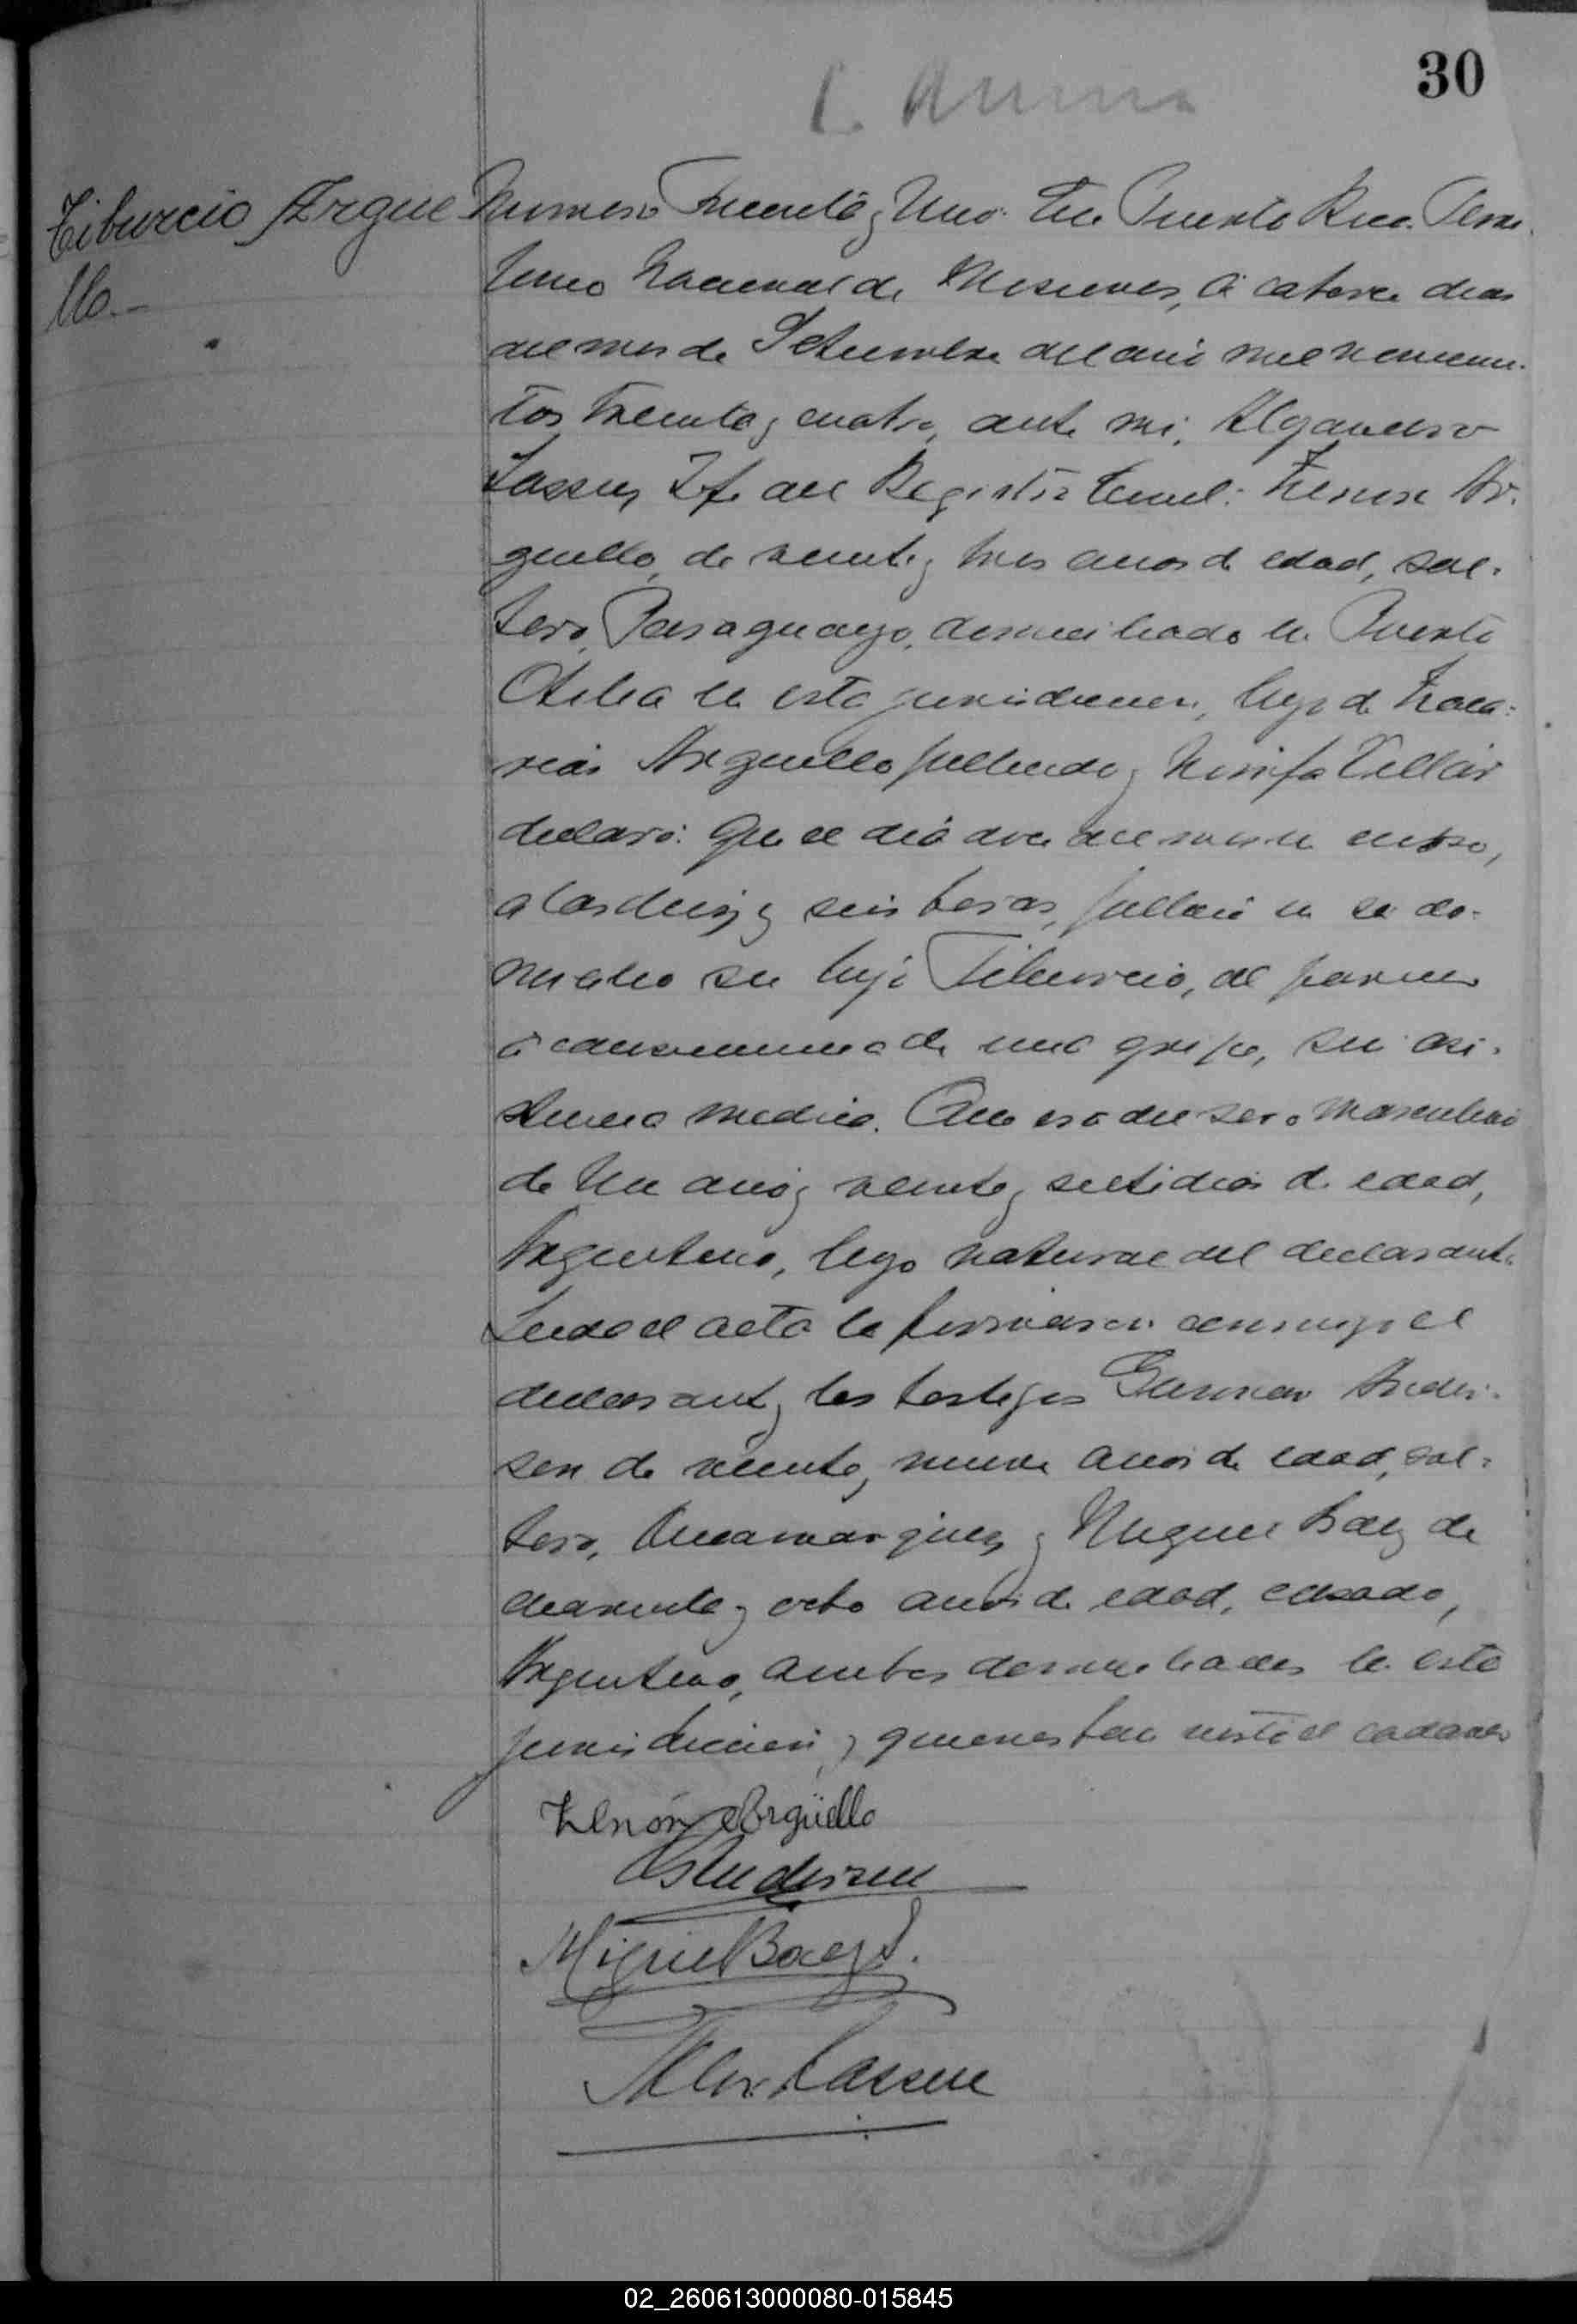 30
Tiburcio Argue
llo.-
Numero Treinta y Uno. En Puerto Rico. Terri
torio Nacional de Misiones, á catorce dias
del mes de Setiembre del año mil novecien-
tos treinta y cuatro, ante mi, Alejandro
Lassen, Jefe del Registro Civil: Zenon Ar-
guello, de veinte y tres años de edad, sol-
tero, Paraguayo, domiciliado en Puerto
Otilia en esta jurisdiccion, hijo de Zaca-
rias Arguello fallecido y Ninifa Villar
declaró: Que el dia doce del mes en curso,
a las diez y seis horas, falleció en su do-
micilio su hijo Tiburcio, al parecer
á consecuencia de una gripe, sin asi-
stencia medica. Que era del sexo masculino
de Un año y veinte y siete dias de edad,
Argentino, hijo natural del declarante.
Leida el acta la firmaron conmigo el
declarante y los testigos German Ander-
sen de veinte y nueve años de edad, sol-
tero, Dinamarques y Miguel Baez de
cuarenta y ocho años de edad, casado,
Argentino, ambos domiciliados en esta
jurisdiccion y quienes han visto el cadaver
Zenón Argüello
G Andersen
Miguel Baez
Alex Lassen
02_260613000080-015845